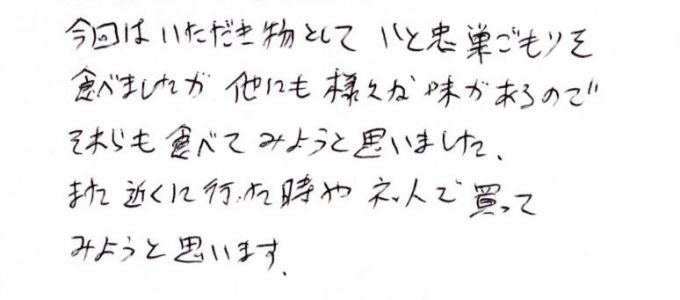 今回はいただき物として いと忠巣ごもりを
食べましたが 他にも様々な味があるので
それらも食べてみようと思いました、
また近くに行った時やネットで買って
みようと思います.